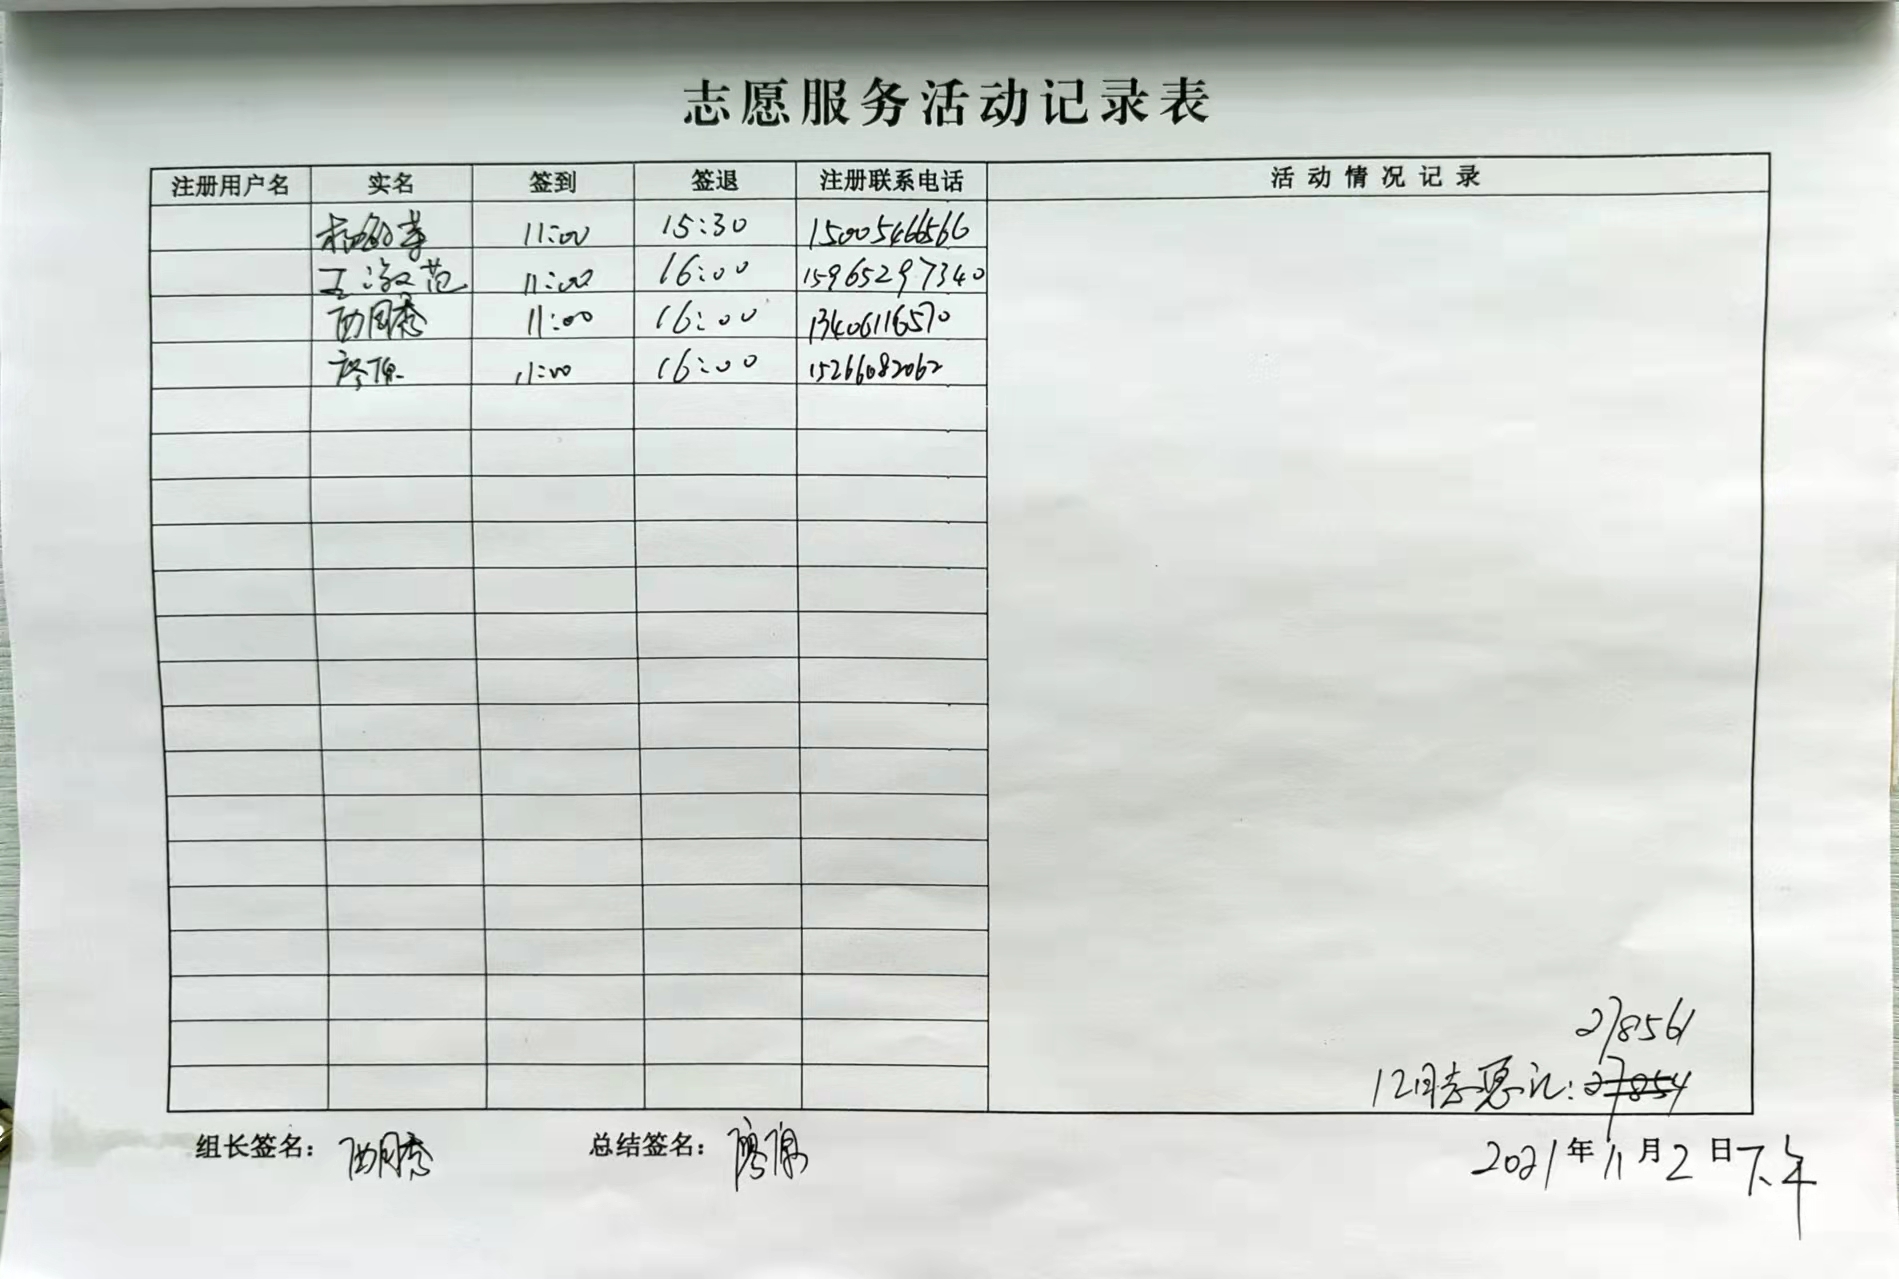 志愿服务活动记录表
注册用户名 实名 签到 签退 注册联系电话 活动情况记录
11:00 15:30 15005466566
王淑范 11:00 16:00 15965297340
西同秀 11:00 16:00 13406116570
廖原 11:00 16:00 15266082062
278561
12日志愿汇: 27854
组长签名: 西同秀 总结签名: 廖原 2021年11月2日下午